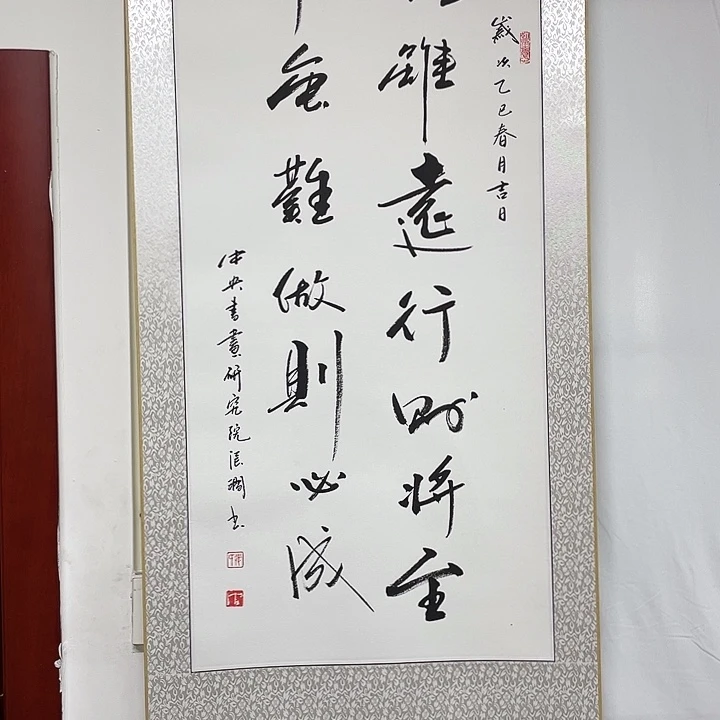 歲次乙巳春月吉日
雖遠行则將至
虽難做則必成
中央書畫研究院書